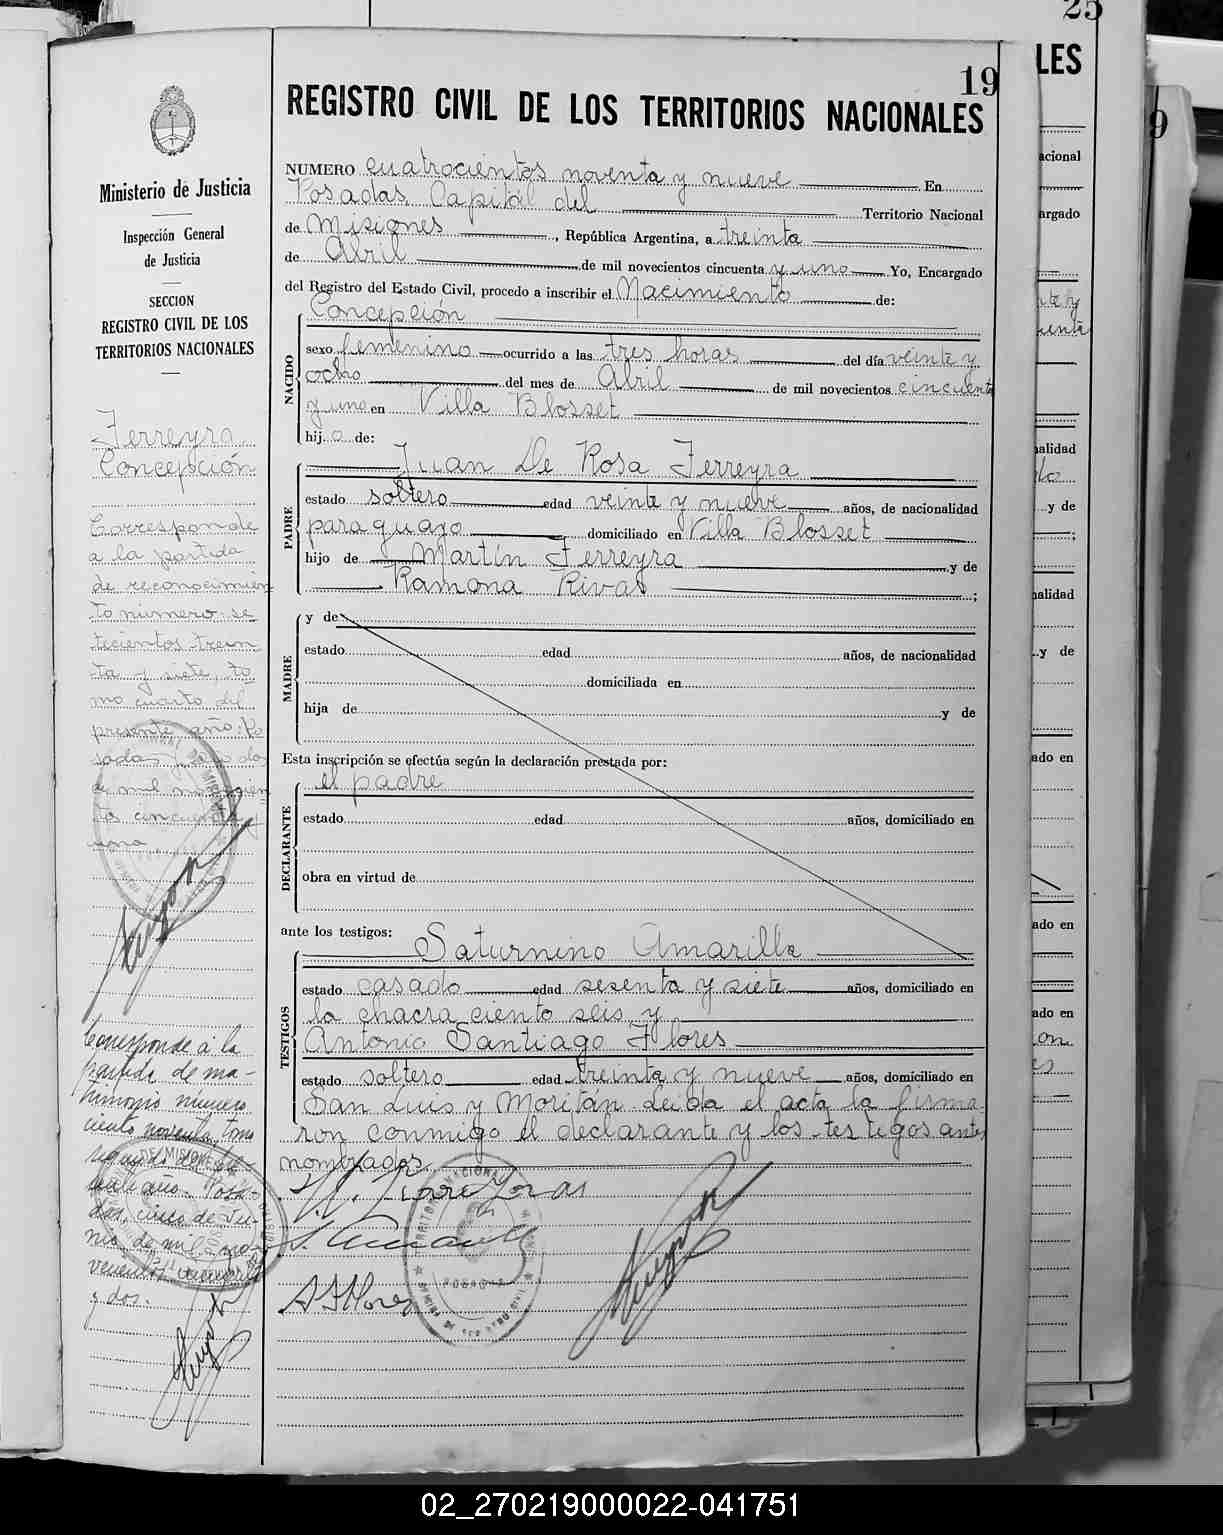 25
19
LES
9
REGISTRO CIVIL DE LOS TERRITORIOS NACIONALES
Ministerio de Justicia
Inspección General
de Justicia
SECCION
REGISTRO CIVIL DE LOS
TERRITORIOS NACIONALES
Ferreyra
Concepción
Corresponde
a la partida
de reconocimien
to número se
tecientos trein
ta y siete, to
mo cuarto del
presente año. Po
sadas,
de mil novecien
tos cincuenta y
uno.
Corresponde a la
partida de ma-
trimonio número
ciento noventa, tomo
segundo del
año. Posa-
das, cinco de Ju-
nio de mil no-
vecientos cincuenta
y dos.
NUMERO cuatrocientos noventa y nueve En
Posadas Capital del Territorio Nacional
de Misiones, República Argentina, a treinta
de Abril de mil novecientos cincuenta y uno Yo, Encargado
del Registro del Estado Civil, procedo a inscribir el Nacimiento de:
NACIDO
Concepción
sexo femenino ocurrido a las tres horas del día veinte y
ocho del mes de Abril de mil novecientos cincuenta
y uno en Villa Blosset
hij a de:
PADRE
Juan De Rosa Ferreyra
estado soltero edad veinte y nueve años, de nacionalidad
paraguayo domiciliado en Villa Blosset
hijo de Martín Ferreyra y de
Ramona Rivas ;
MADRE
y de
estado edad años, de nacionalidad
domiciliada en
hija de y de
Esta inscripción se efectúa según la declaración prestada por:
DECLARANTE
el padre
estado edad años, domiciliado en
obra en virtud de
ante los testigos:
TESTIGOS
Saturnino Amarilla
estado casado edad sesenta y siete años, domiciliado en
la chacra ciento seis y
Antonio Santiago Flores
estado soltero edad treinta y nueve años, domiciliado en
San Luis y Moritán Leida el acta la firma
ron conmigo el declarante y los testigos antes
nombrados.
A S Flores
02_270219000022-041751